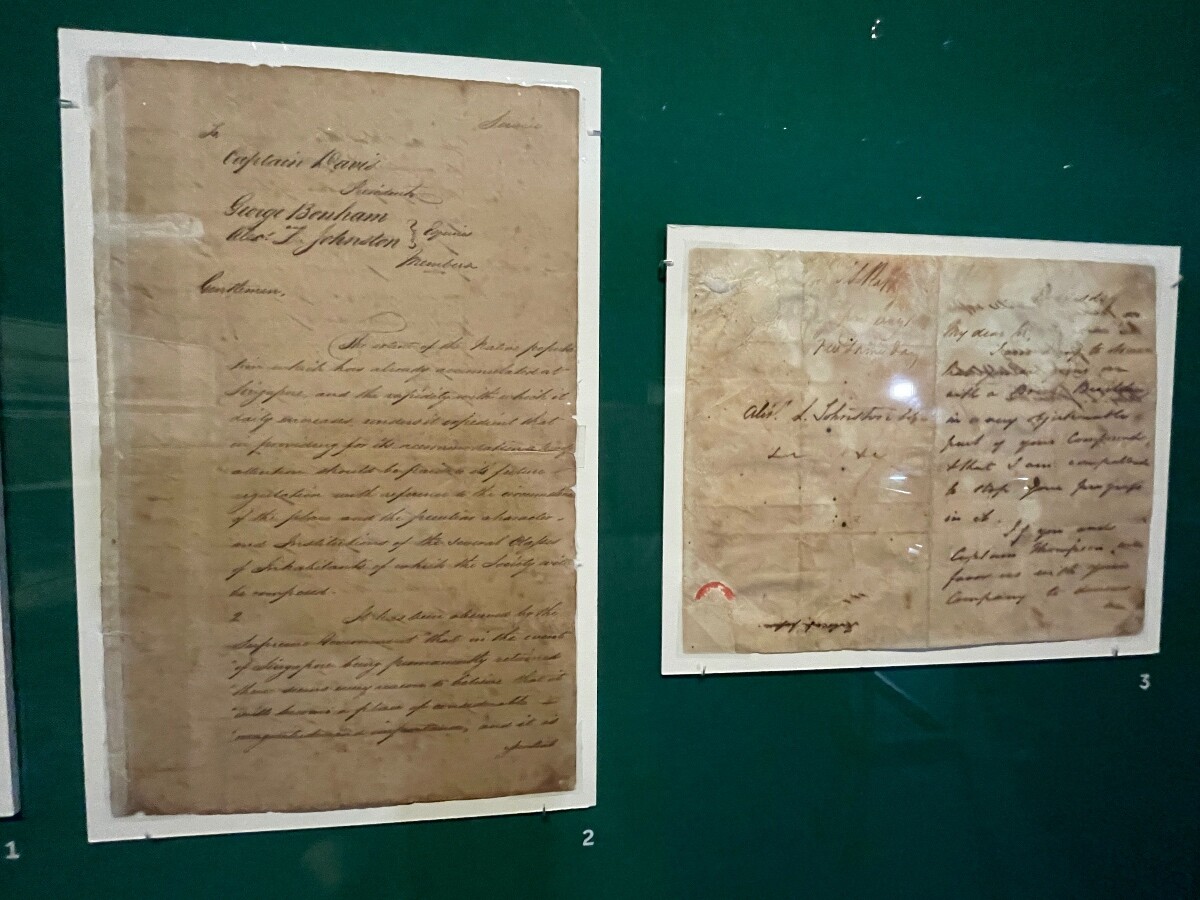 To
Captain Davis
President
George Bonham
Alexr. L. Johnston } Esquires
Members
Gentlemen,
The extent of the Native popula
tion which has already accumulated at
Singapore, and the rapidity with which it
daily increases, renders it expedient that
in providing for its accommodation a
attention should be paid to its future
regulation with reference to the circumstances
of the place and the peculiar character,
and Institutions of the several Classes
of Inhabitants of which the Society will
be composed.
2 It has been observed by the
Supreme Government "that in the event
"of Singapore being permanently retained
"there seems every reason to believe that it
"will become a place of considerable
"magnitude and importance, and it is
My dear Sir,
to
with a
in a very objectionable
part of your Compound,
& that I am compelled
to stop your progress
in it.
If you and
Captain Thompson, will
favor us with your
Company to dinner
Alexr. L. Johnston Esq.
&c &c
1
2
3